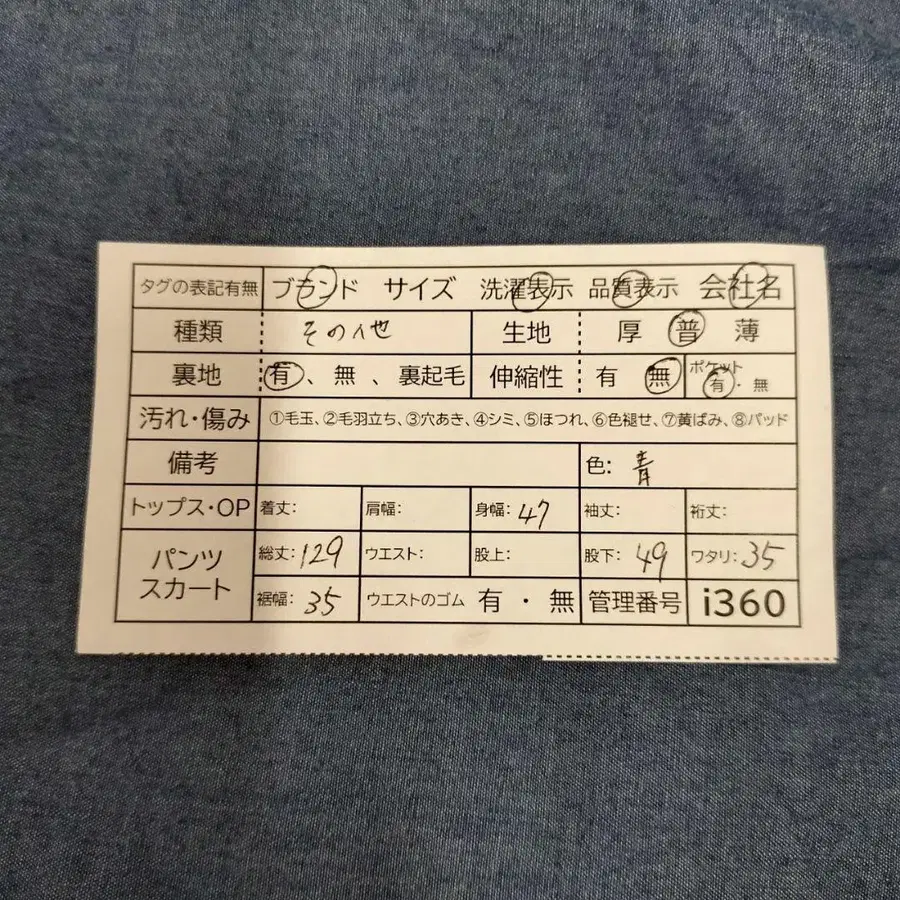 タグの表記有無 ブランド サイズ 洗濯表示 品質表示 会社名
種類 その他 生地 厚 普 薄
裏地 有、無、裏起毛 伸縮性 有 無 ポケット 有・無
汚れ・傷み ①毛玉、②毛羽立ち、③穴あき、④シミ、⑤ほつれ、⑥色褪せ、⑦黄ばみ、⑧パッド
備考 色: 青
トップス・OP 着丈: 肩幅: 身幅: 47 袖丈: 裄丈:
パンツ スカート 総丈: 129 ウエスト: 股上: 股下: 49 ワタリ: 35
裾幅: 35 ウエストのゴム 有・無 管理番号 i360